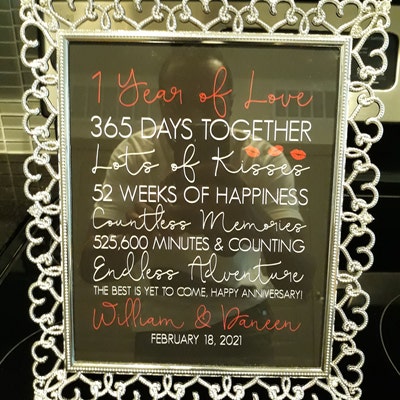 1 Year of Love
365 DAYS TOGETHER
Lots of Kisses
52 WEEKS OF HAPPINESS
Countless Memories
525,600 MINUTES & COUNTING
Endless Adventure
THE BEST IS YET TO COME, HAPPY ANNIVERSARY!
William & Daneen
FEBRUARY 18, 2021